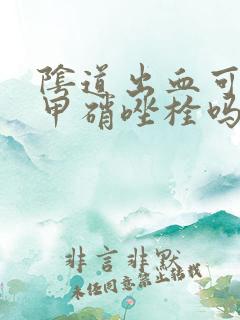 陰道出血可
甲硝唑栓吗
非言非默
未任同意禁止转载